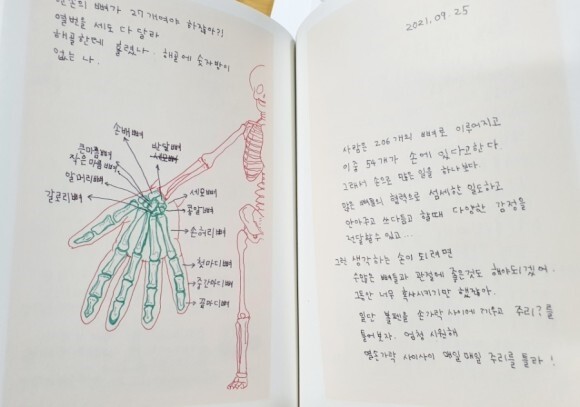 뼈가 27개여야 하잖아?!
열번을 세도 다 달라
해골한테 홀렸나. 해골에 숫자밤이
없는 나.
손배뼈
반달뼈
세모뼈
큰마름뼈
작은마름뼈
알머리뼈
갈고리뼈
세모뼈
콩알뼈
손허리뼈
첫마디뼈
중간마디뼈
끝마디뼈
2021.09.25
사람은 206개의 뼈로 이루어지고
이중 54개가 손에 있다고한다.
그래서 손으로 많은 일을 하나보다.
많은 뼈들의 협력으로 섬세한 일도하고
안아주고 쓰다듬고 할때 다양한 감정을
전달할수 있고...
그런 생각하는 손이 되려면
수많은 뼈들과 관절에 좋은것도 해야되겠어.
그동안 너무 혹사시키기만 했잖아.
일단 볼펜을 손가락 사이에 끼우고 주리?를
틀어보자. 엄청 시원해
열손가락 사이사이 매일매일 주리를 틀라!